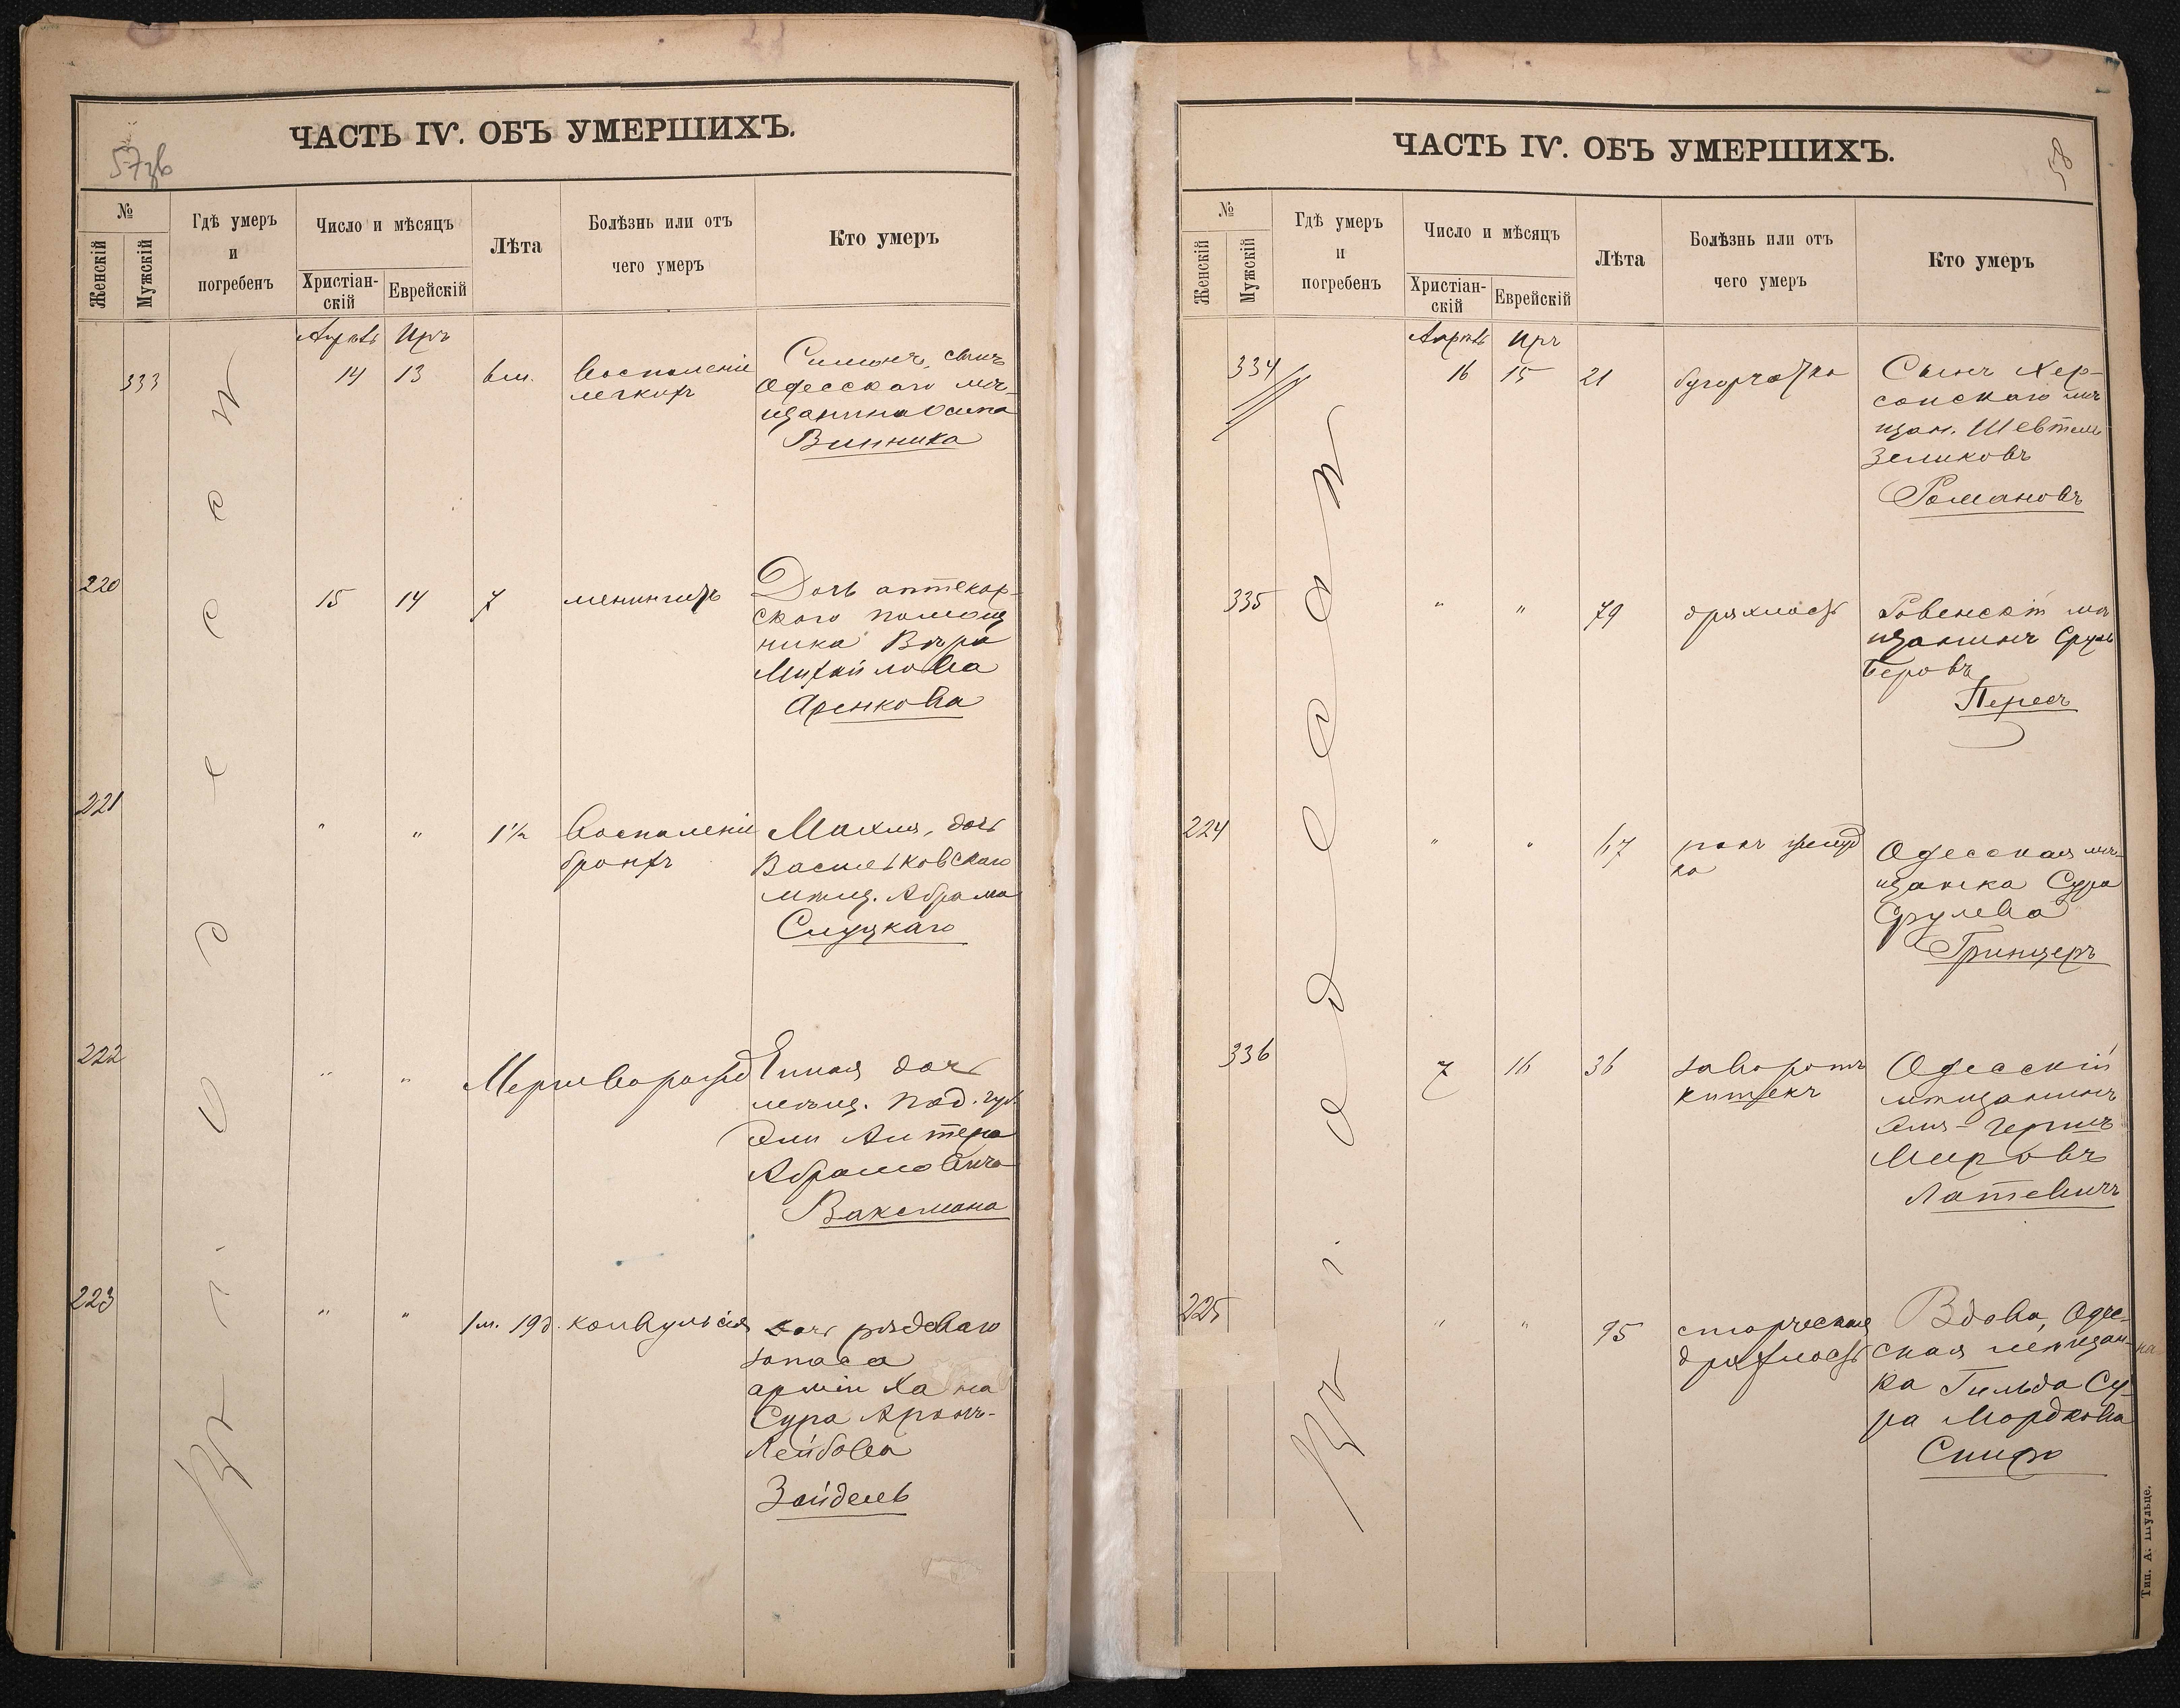 ЧАСТЬ IV. ОБЪ УМЕРШИХЪ.
57зв
№
Женскій
Мужскій
Гдѣ умеръ
и
погребенъ
Число и мѣсяцъ
Христіан-
скій
Еврейскій
Лѣта
Болѣзнь или отъ
чего умеръ
Кто умеръ
Въ г. Одессѣ
Апрѣль Иръ
333 14 13 6 м. Воспаленіе
легкихъ
Симонъ, сынъ
Одесскаго мѣ-
щанина Осипа
Винника
220 15 14 7 менингитъ
Дочь аптекар-
скаго помощ
ника Вѣра
Михайлова
Аренкова
221 " " 1½ Воспаленіе
бронхъ
Махля, дочь
Васильковскаго
мѣщ. Абрама
Слуцкаго
222 " " Мертворожд
дочь
мѣщ. Под. губ.
Эли Антера
Абрамовича
Ваксмана
223 " " 1 м. 19 д. конвульсія
дочь рядоваго
запаса
арміи Хана
Сура Аронъ-
Лейбова
Зайдель
ЧАСТЬ IV. ОБЪ УМЕРШИХЪ.
58
№
Женскій
Мужскій
Гдѣ умеръ
и
погребенъ
Число и мѣсяцъ
Христіан-
скій
Еврейскій
Лѣта
Болѣзнь или отъ
чего умеръ
Кто умеръ
Въ г. Одессѣ
Апрѣль Иръ
334 16 15 21 бугорчатка
Сынъ Хер-
сонскаго мѣ
щан. Шевтель
Зеликовъ
Романовъ
335 " " 79 дряхлость
Ровенскій мѣ
щанинъ Сруль
Беровъ
Пересъ
224 " " 67 ракъ желуд
ка
Одесская мѣ-
щанка Сура
Срулева
Гринцеръ
336 7 16 36 заворотъ
кишекъ
Одесскій
мѣщанинъ
Эля-Гершъ
Мировъ
Латевичъ
225 " " 95 старческая
дряхлость
Вдова, Одес-
ская мѣщан-
ка Гильда Су-
ра Мордкова
Спиро
Тип. А. Шульце.